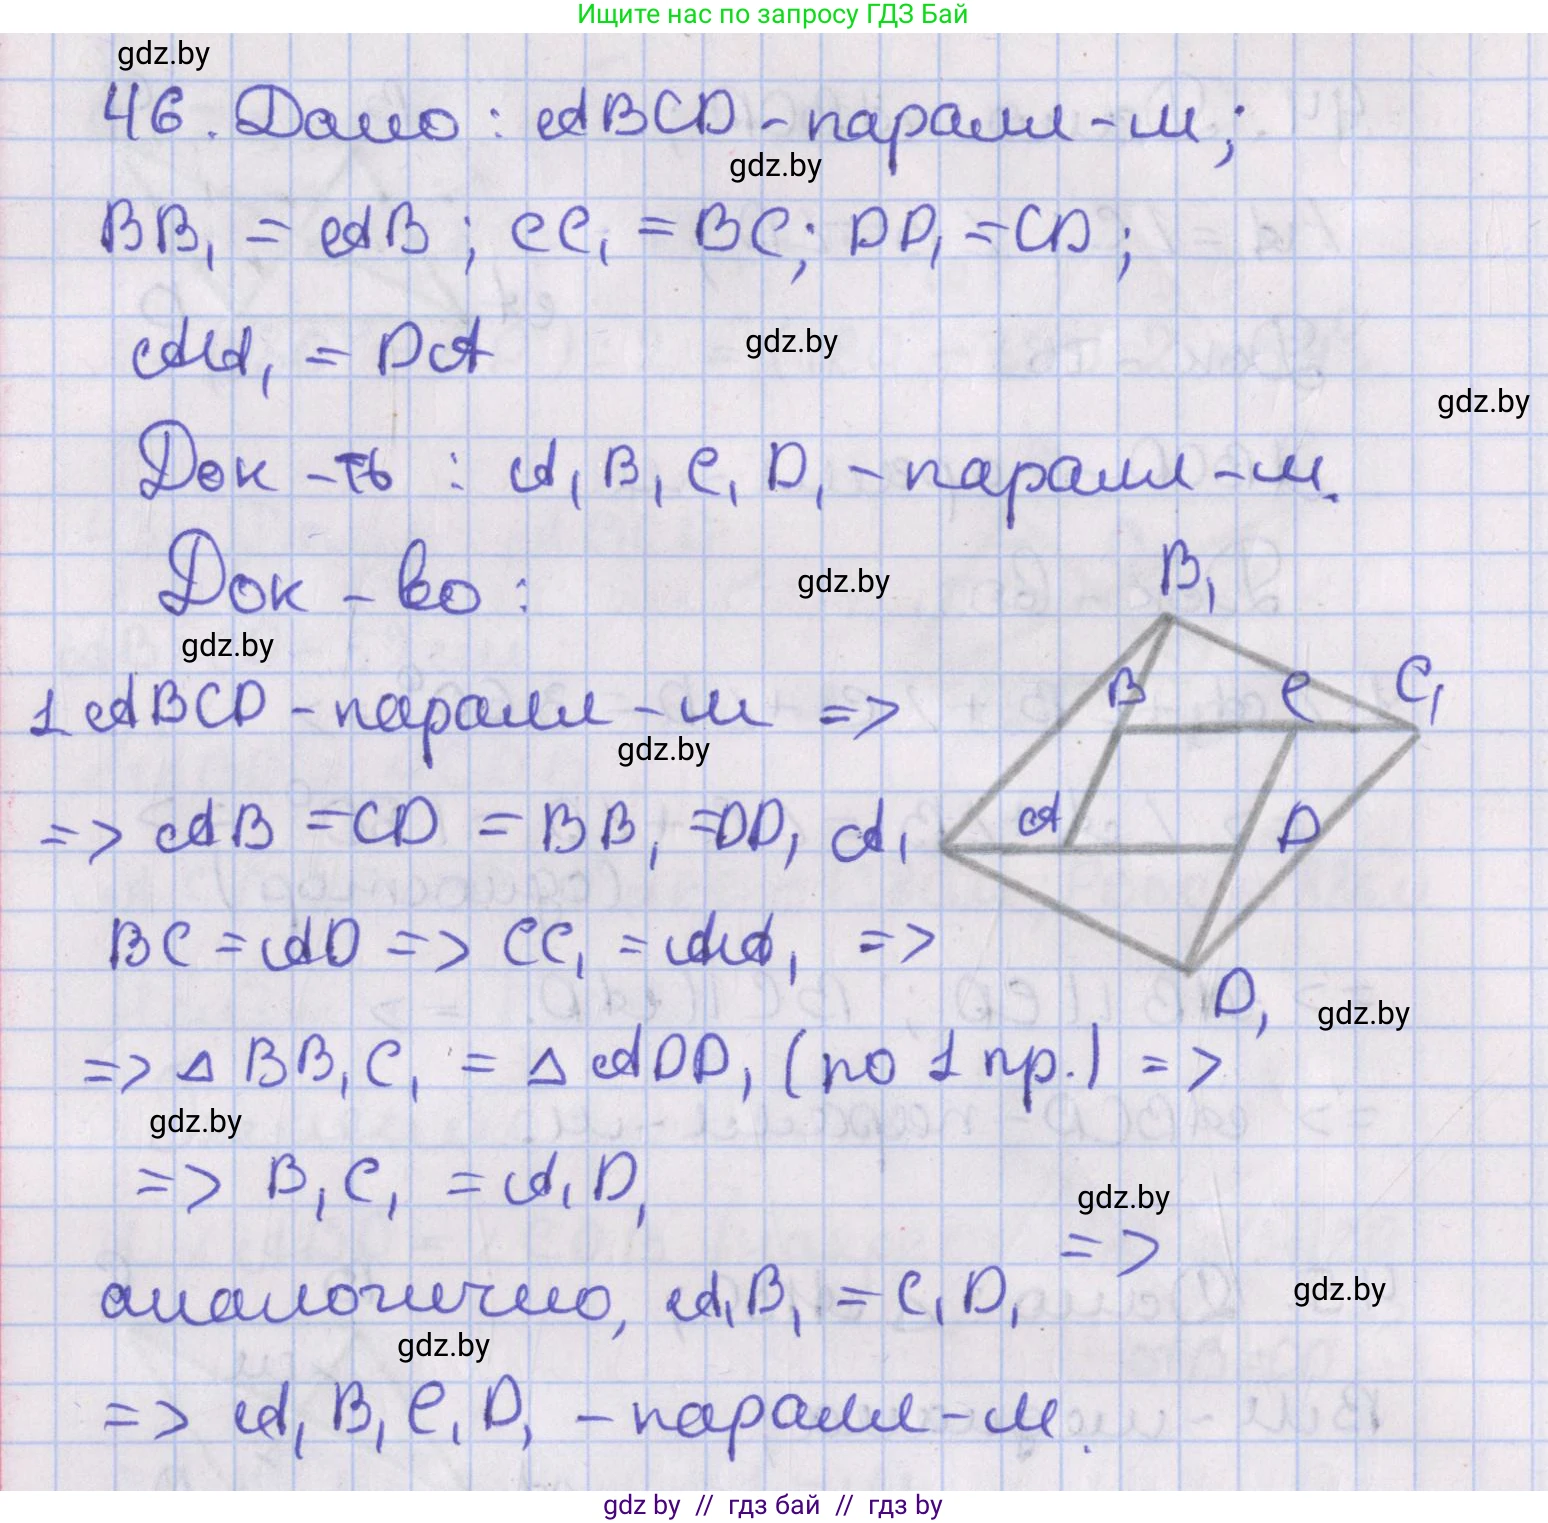 Ищите нас по запросу ГДЗ Бай
gdz.by
46. Дано: ABCD - паралл-м;
gdz.by
BB₁ = AB; CC₁ = BC; DD₁ = CD;
AA₁ = DA
gdz.by
gdz.by
Док-ть: A₁B₁C₁D₁ - паралл-м.
Док-во:
gdz.by
B₁
gdz.by
B C C₁
1 ABCD - паралл-м =>
gdz.by
=> AB = CD = BB₁ = DD₁
A₁ A D
BC = AD => CC₁ = AA₁ =>
D₁
gdz.by
=> △ BB₁C₁ = △ ADD₁ (по 1 пр.) =>
gdz.by
=> B₁C₁ = A₁D₁
gdz.by
аналогично, A₁B₁ = C₁D₁ =>
gdz.by
gdz.by
=> A₁B₁C₁D₁ - паралл-м.
gdz by // гдз бай // гдз by